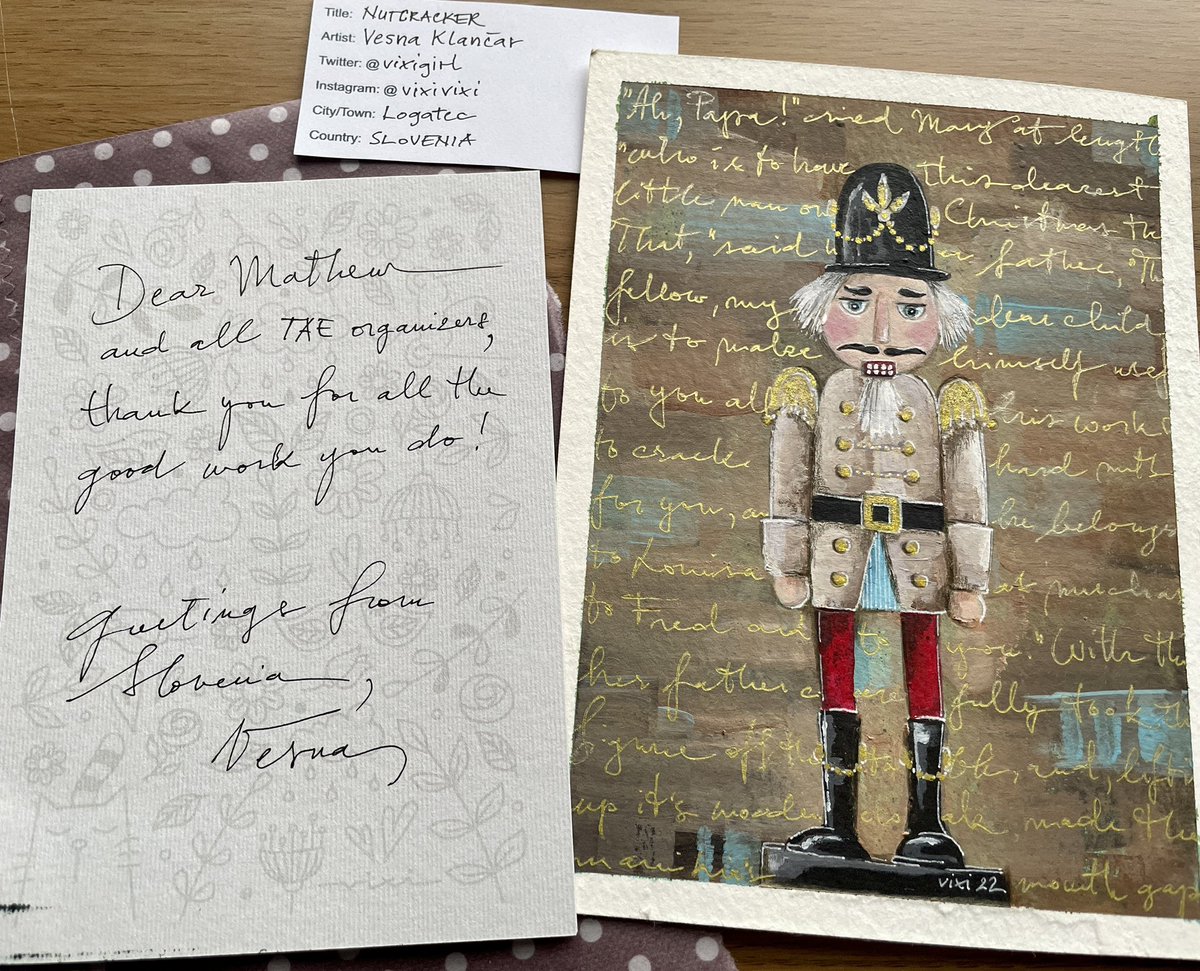 Title: NUTCRACKER
Artist: Vesna Klančar
Twitter: @vixigirl
Instagram: @vixivixi
City/Town: Logatec
Country: SLOVENIA
Dear Mathew
and all TAE organizers,
thank you for all the
good work you do!
Greetings from
Slovenia,
Vesna
"Ah, Papa!" cried Mary at length
"who is to have this dearest
little man on Christmas
That, " said father, "Th
fellow, my dear child
is to make himself use
to you all his work
to crack hard nuts
for you, an he belongs
to Louisa as much as
to Fred and to you." With th
her father carefully took th
figure off the table, and, lifti
up it's wooden cloak, made the
mouth gap
vixi 22